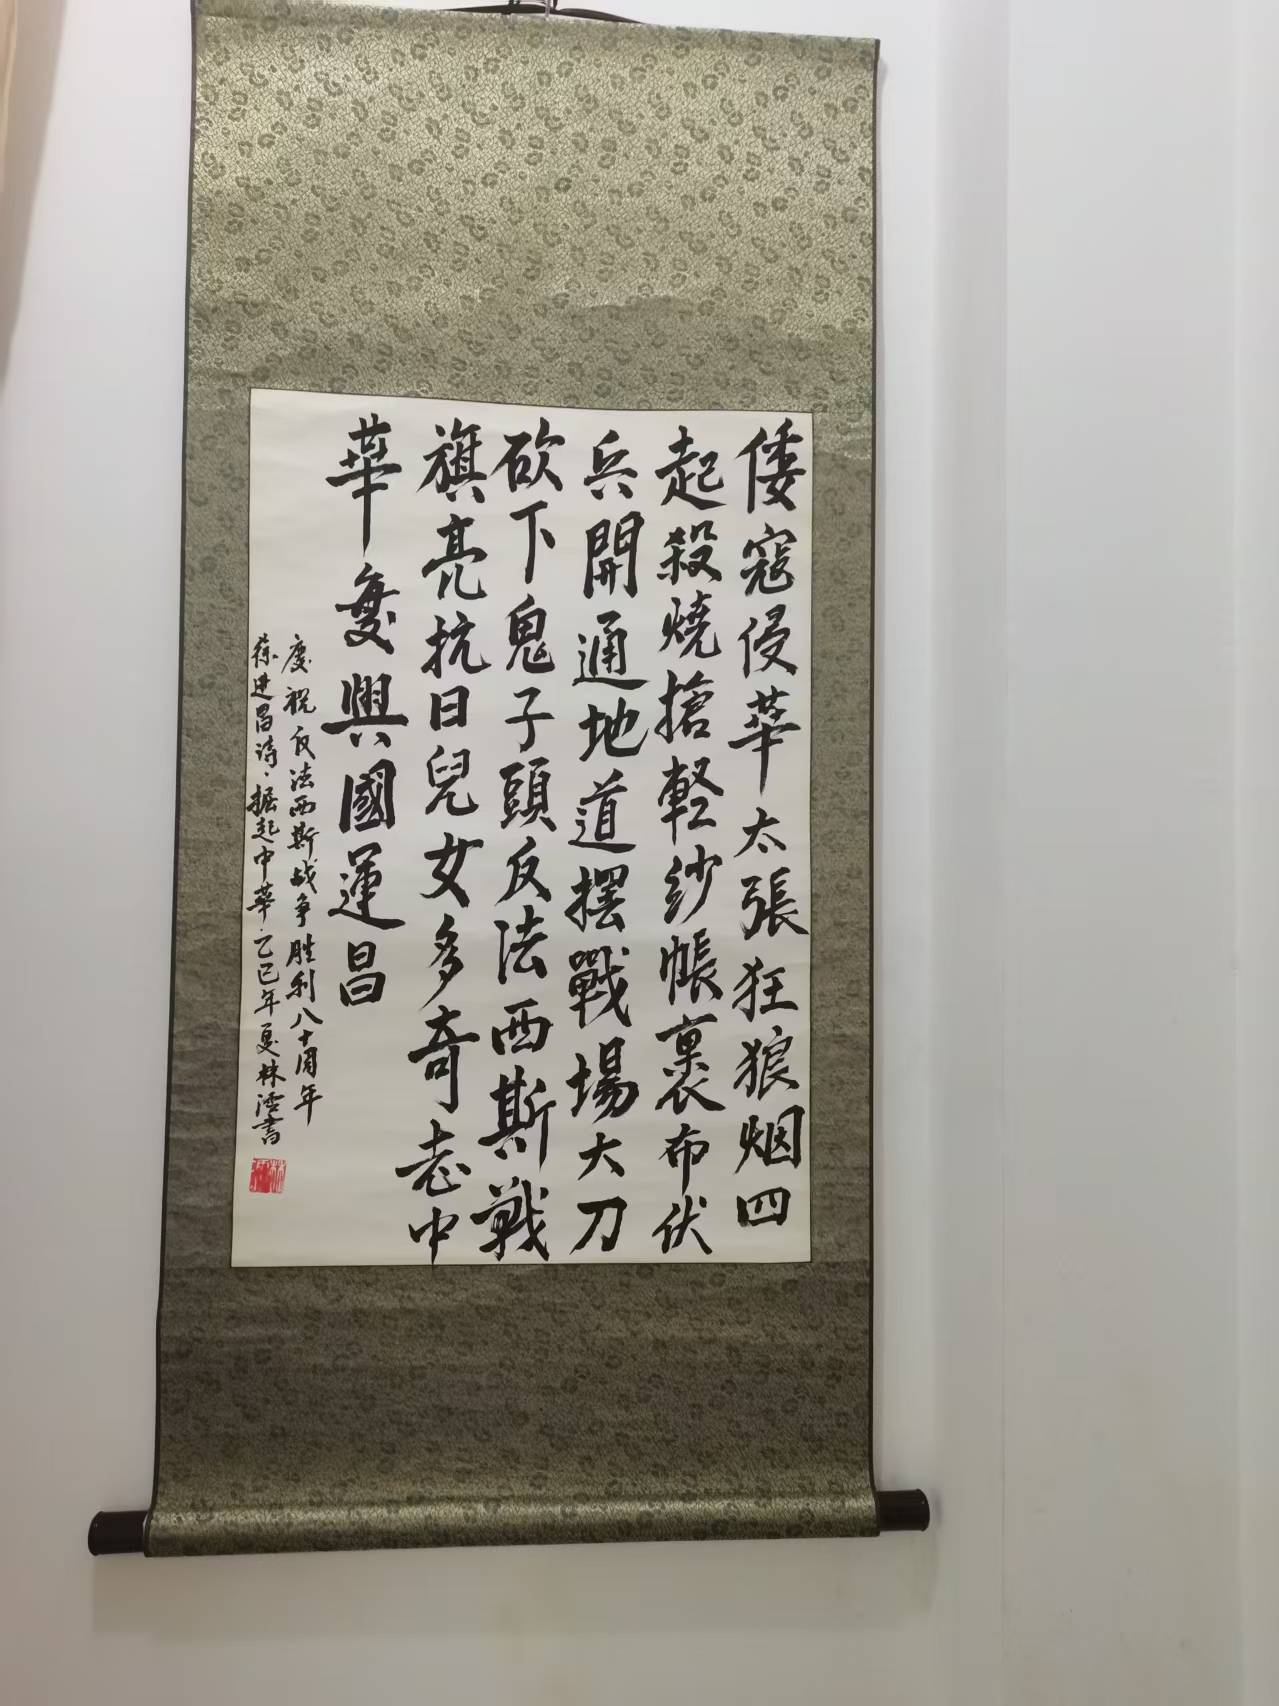 倭寇侵華太張狂狼烟四
起殺燒搶輕紗帳裏布伏
兵開通地道擺戰場大刀
砍下鬼子頭反法西斯戰
旗亮抗日兒女多奇志中
華复興國運昌
慶祝反法西斯战争胜利八十周年
徐进昌诗·掘起中華·乙巳年夏林澐書